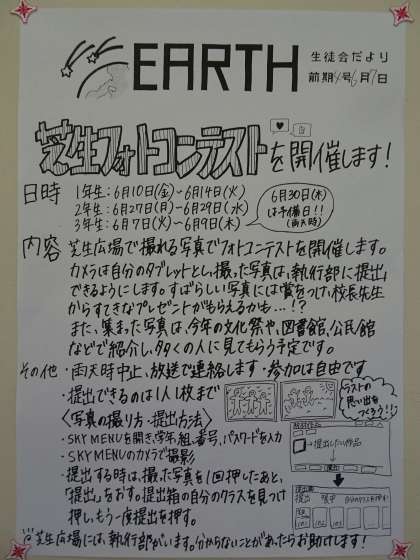 EARTH
生徒会だより
前期4号6月7日
芝生フォトコンテストを開催します!
日時 1年生:6月10日(金)~6月14日(火)
2年生:6月27日(月)~6月29日(水)
3年生:6月7日(火)~6月9日(木)
6月30日(木)
は予備日!!
(雨天時)
内容 芝生広場で撮れる写真でフォトコンテストを開催します。
カメラは自分のタブレットとし、撮った写真は、執行部に提出
できるようにします。すばらしい写真には賞をつけ、校長先生
からすてきなプレゼントがもらえるかも…!?
また、集まった写真は、今年の文化祭や、図書館、公民館
などで紹介し、多くの人に見てもらう予定です。
その他 ・雨天時中止、放送で連絡します・参加は自由です
・提出できるのは1人1枚まで
ラストの
思い出を
つくろう!!
〈写真の撮り方・提出方法〉
・SKYMENUを開き、学年、組、番号、パスワードを入力
・SKYMENUのカメラで撮影
・提出する時は、撮った写真を1回押したあと、
「提出」をおす。提出箱の自分のクラスを見つけ
押し、もう一度提出を押す。
提出したい作品
提出
提出箱
芝生広場には、執行部がいます。分からないことがあったらお助けします!